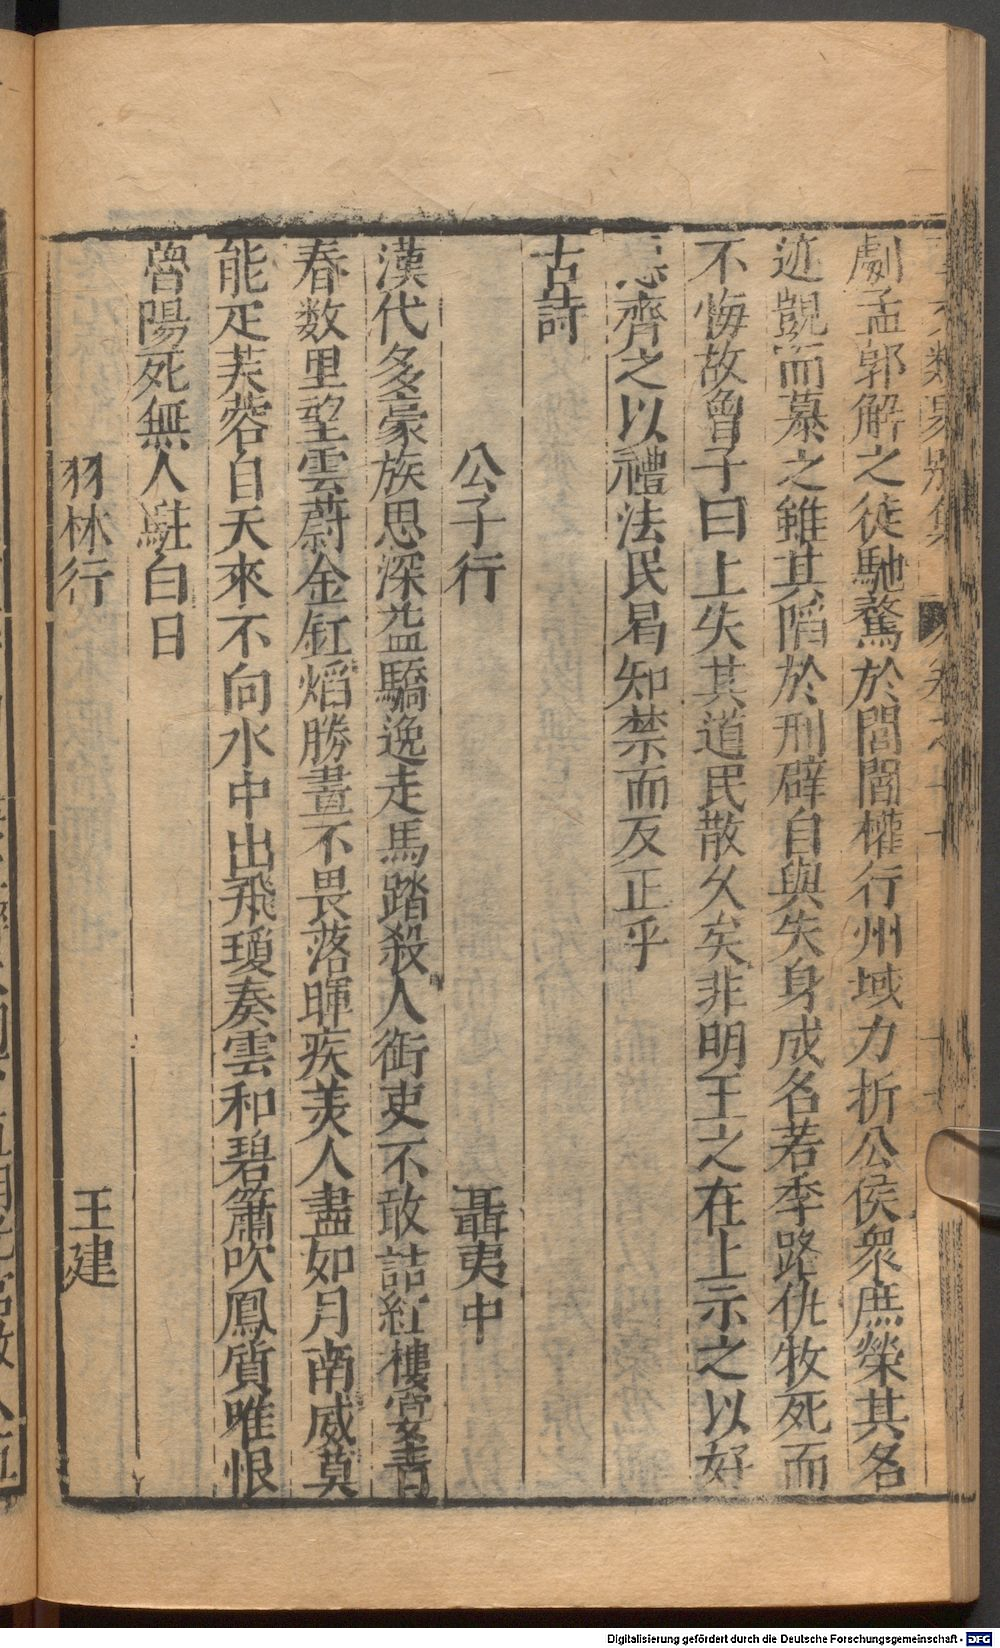 劇孟郭解之徒馳騖於閭閻權行州域力折公侯衆庶榮其名
迹覬而慕之雖其陷於刑辟自與失身成名若季路仇牧死而
不悔故魯子曰上失其道民散久矣非明王之在上示之以好
惡齊之以禮法民曷知禁而反正乎
古詩
公子行 聶夷中
漢代多豪族思深益驕逸走馬踏殺人街吏不敢詰紅樓宴青
春数里望雲蔚金缸熖勝晝不畏落暉疾美人盡如月南威莫
能疋芙蓉自天來不向水中出飛瓊奏雲和碧簫吹鳳質唯恨
魯陽死無人駐白日
羽林行 王建
Digitalisierung gefördert durch die Deutsche Forschungsgemeinschaft - DFG